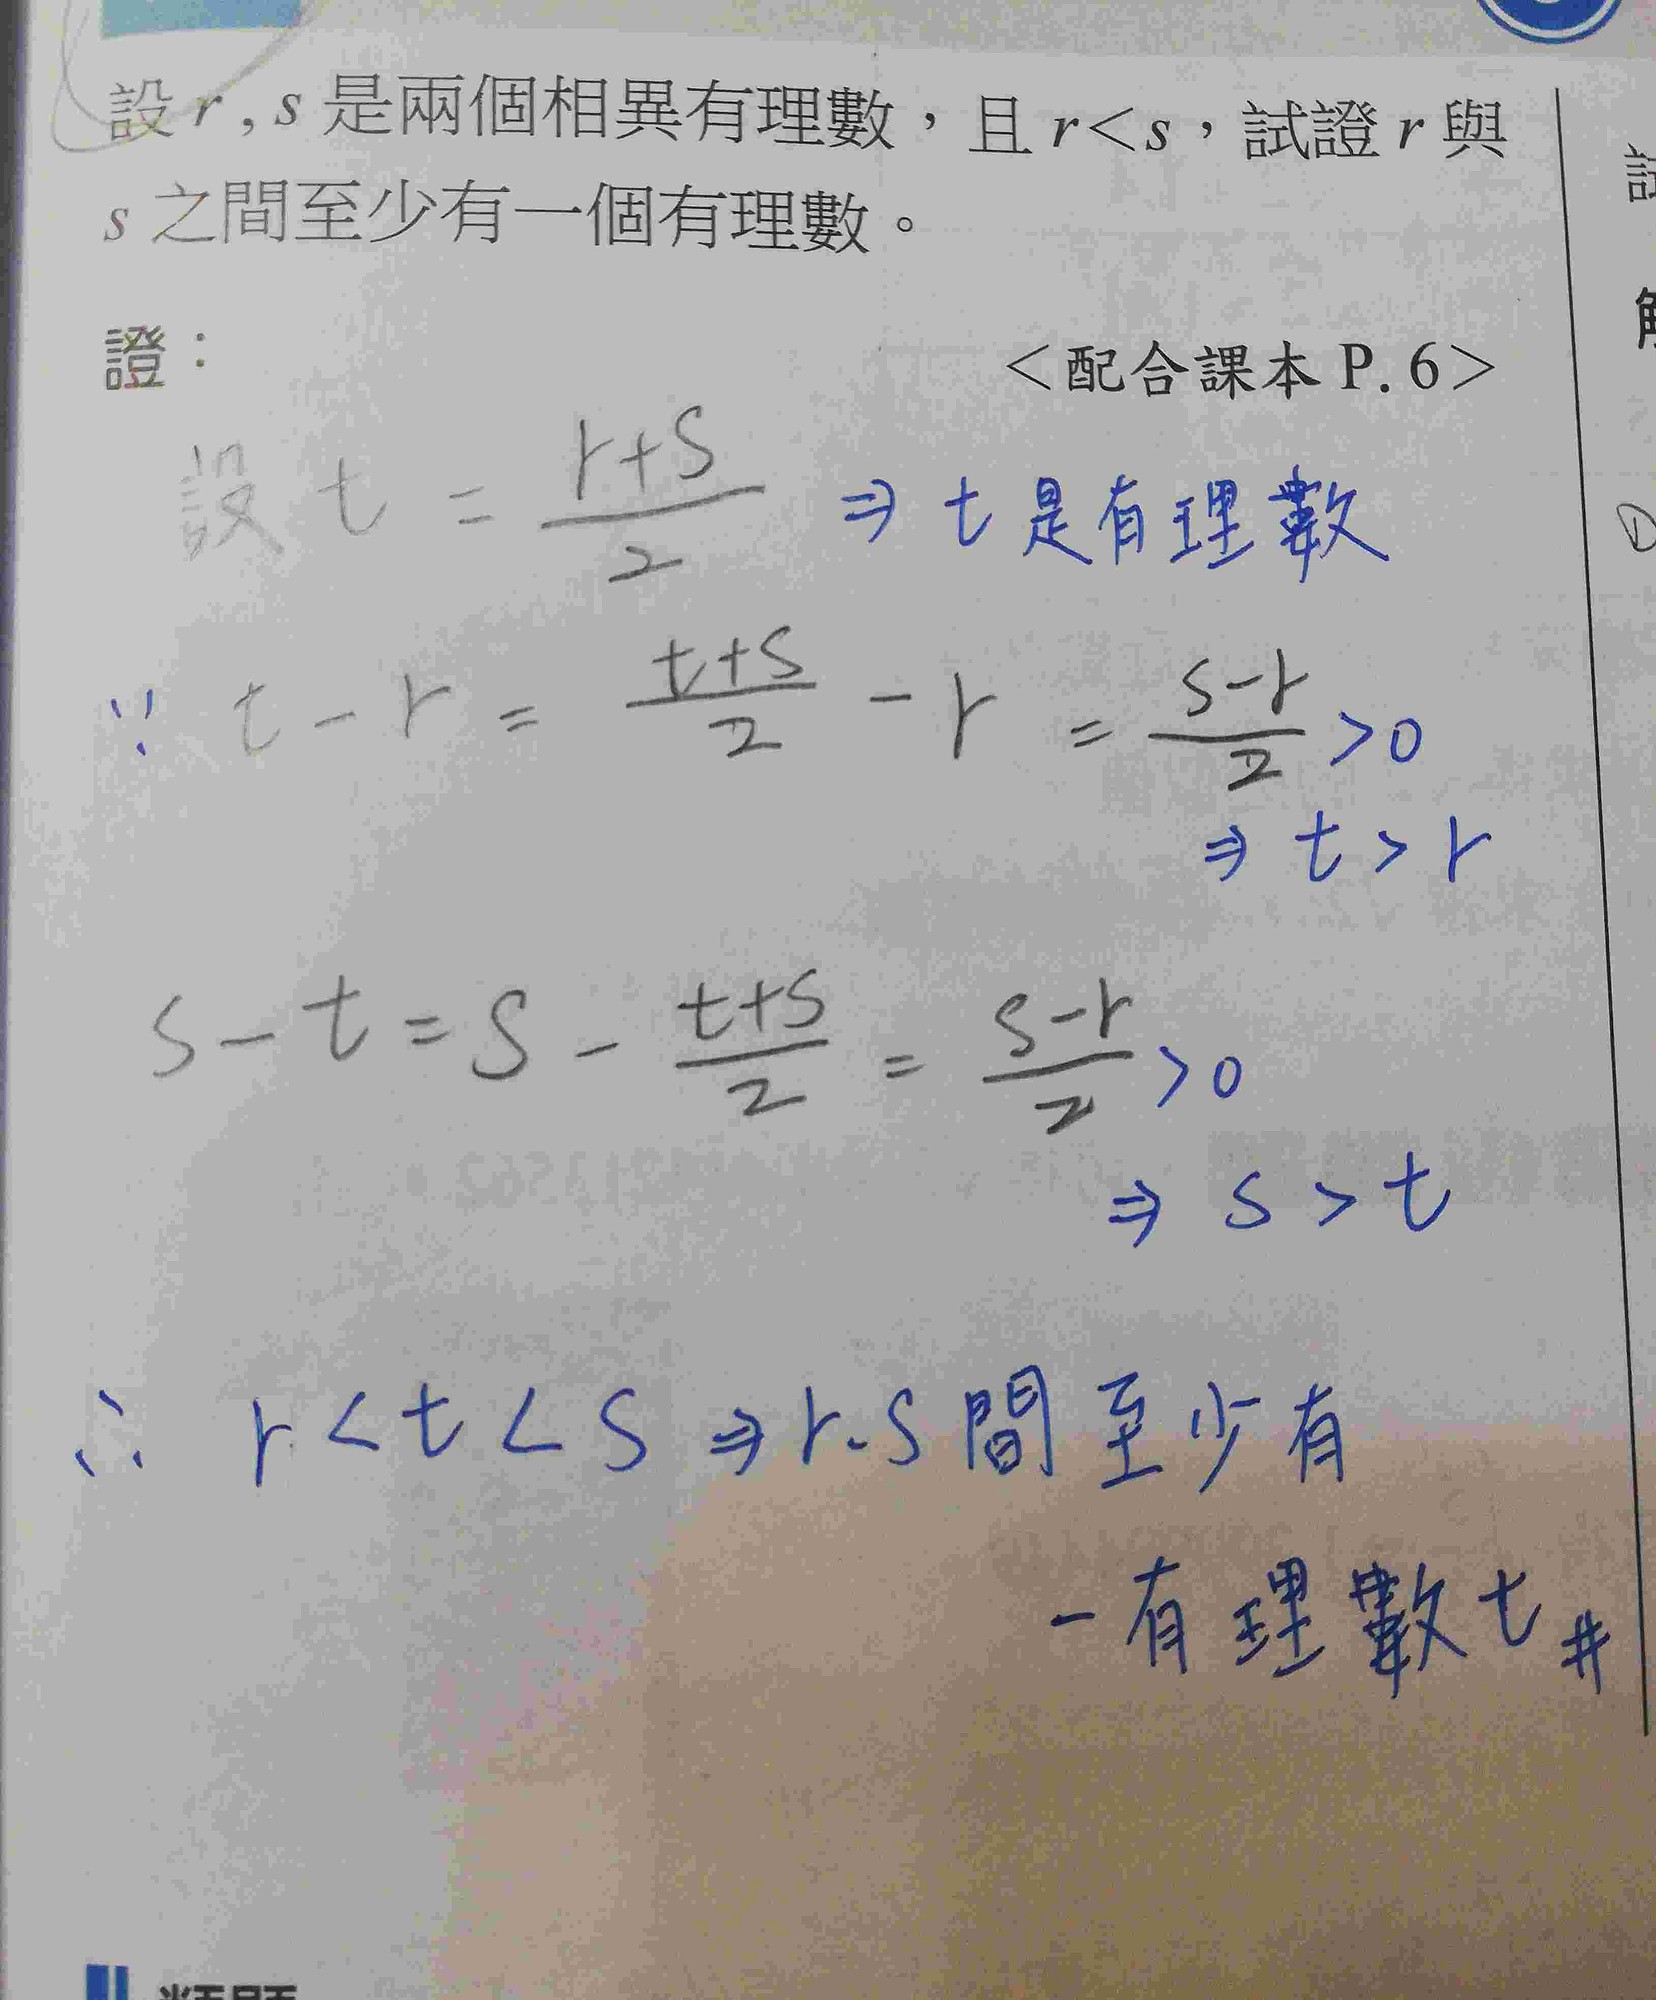 設 r , s 是兩個相異有理數，且 r＜s，試證 r 與
s 之間至少有一個有理數。
證：
＜配合課本 P. 6＞
設 t = (r+s)/2 ⇒ t 是有理數
∵ t - r = (t+s)/2 - r = (s-r)/2 > 0
⇒ t > r
s - t = s - (t+s)/2 = (s-r)/2 > 0
⇒ s > t
∴ r < t < s ⇒ r.s 間至少有
一有理數 t #
類題